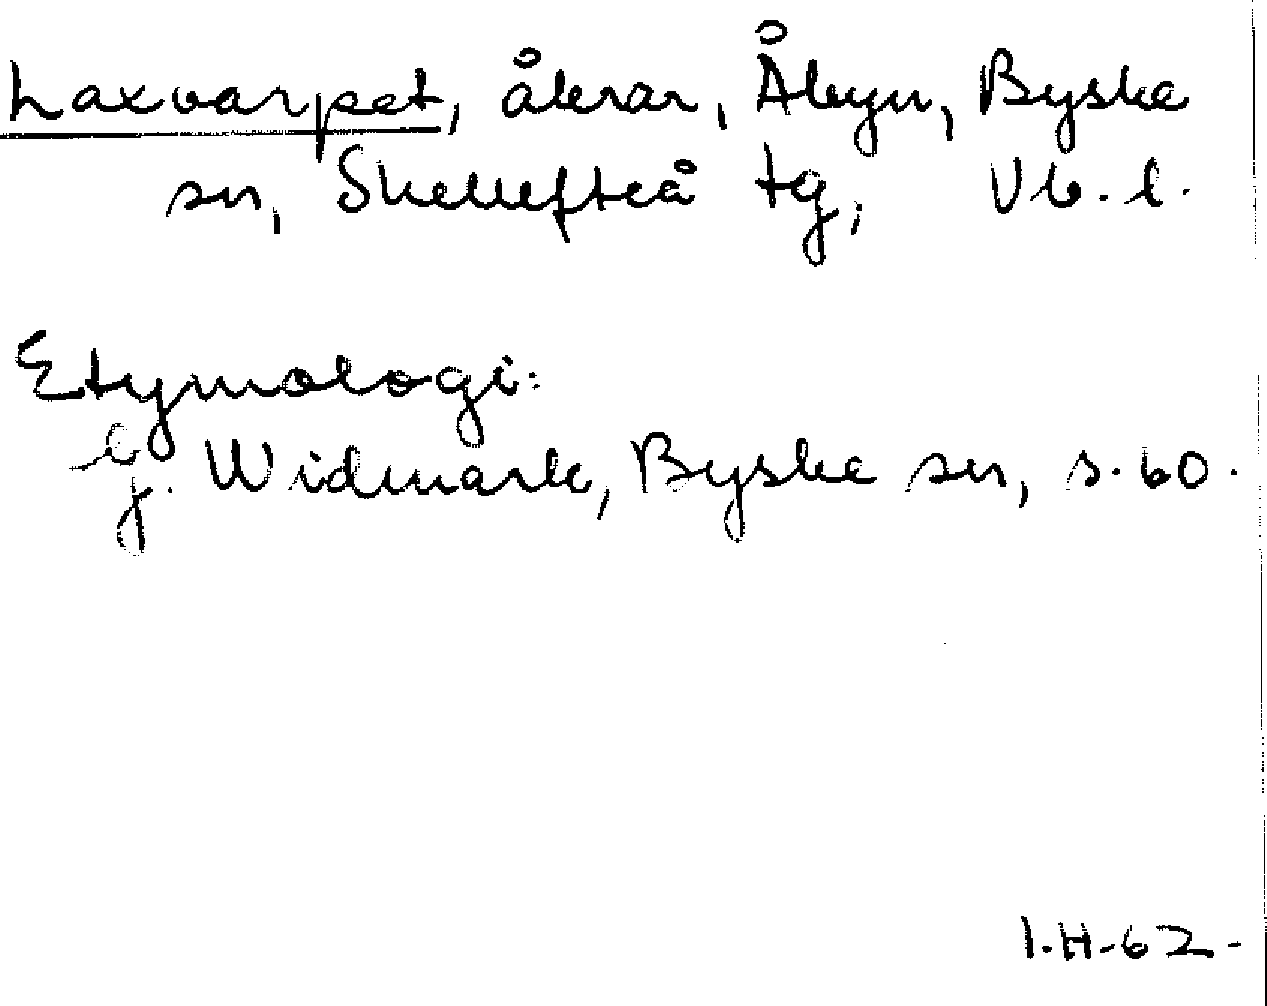 Laxvarpet, åkrar, Åbyn, Byske
sn, Skellefteå tg, Vb. l.
Etymologi:
G. Widmark, Byske sn, s. 60.
I.H-62-